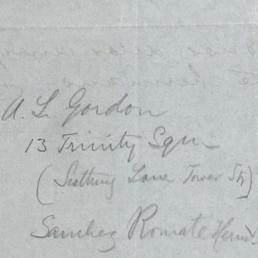 A. L. Gordon
13 Trinity Squ
(Seething Lane Tower St)
Sanchez Romate Herm